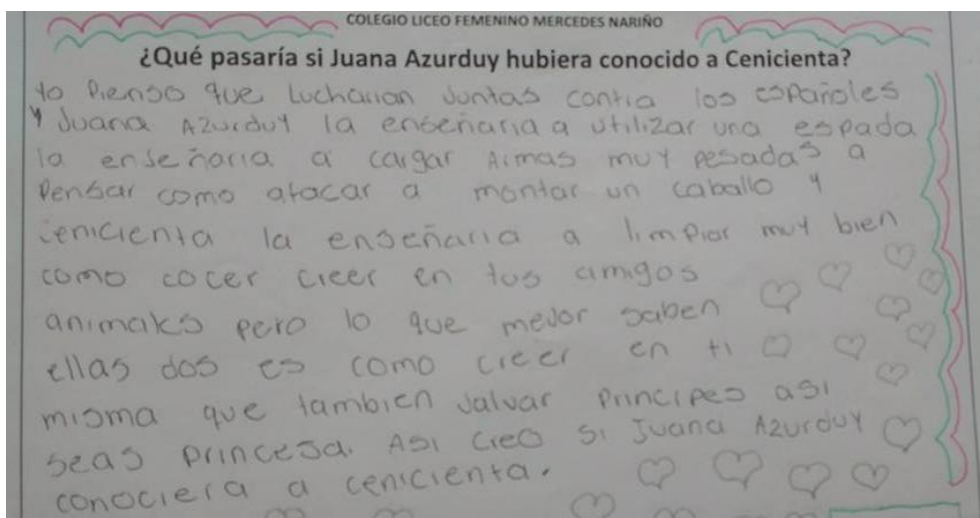 COLEGIO LICEO FEMENINO MERCEDES NARIÑO
¿Qué pasaría si Juana Azurduy hubiera conocido a Cenicienta?
Yo Pienso que Lucharian Juntas contra los españoles
y Juana Azurduy la enseñaria a utilizar una espada
la enseñaria a cargar Armas muy pesadas a
Pensar como atacar a montar un caballo y
cenicienta la enseñaria a limpiar muy bien
como cocer creer en tus amigos
animales pero lo que mejor saben
ellas dos es como creer en ti
misma que tambien salvar Principes asi
seas princesa. Asi creo si Juana Azurduy
conociera a cenicienta.